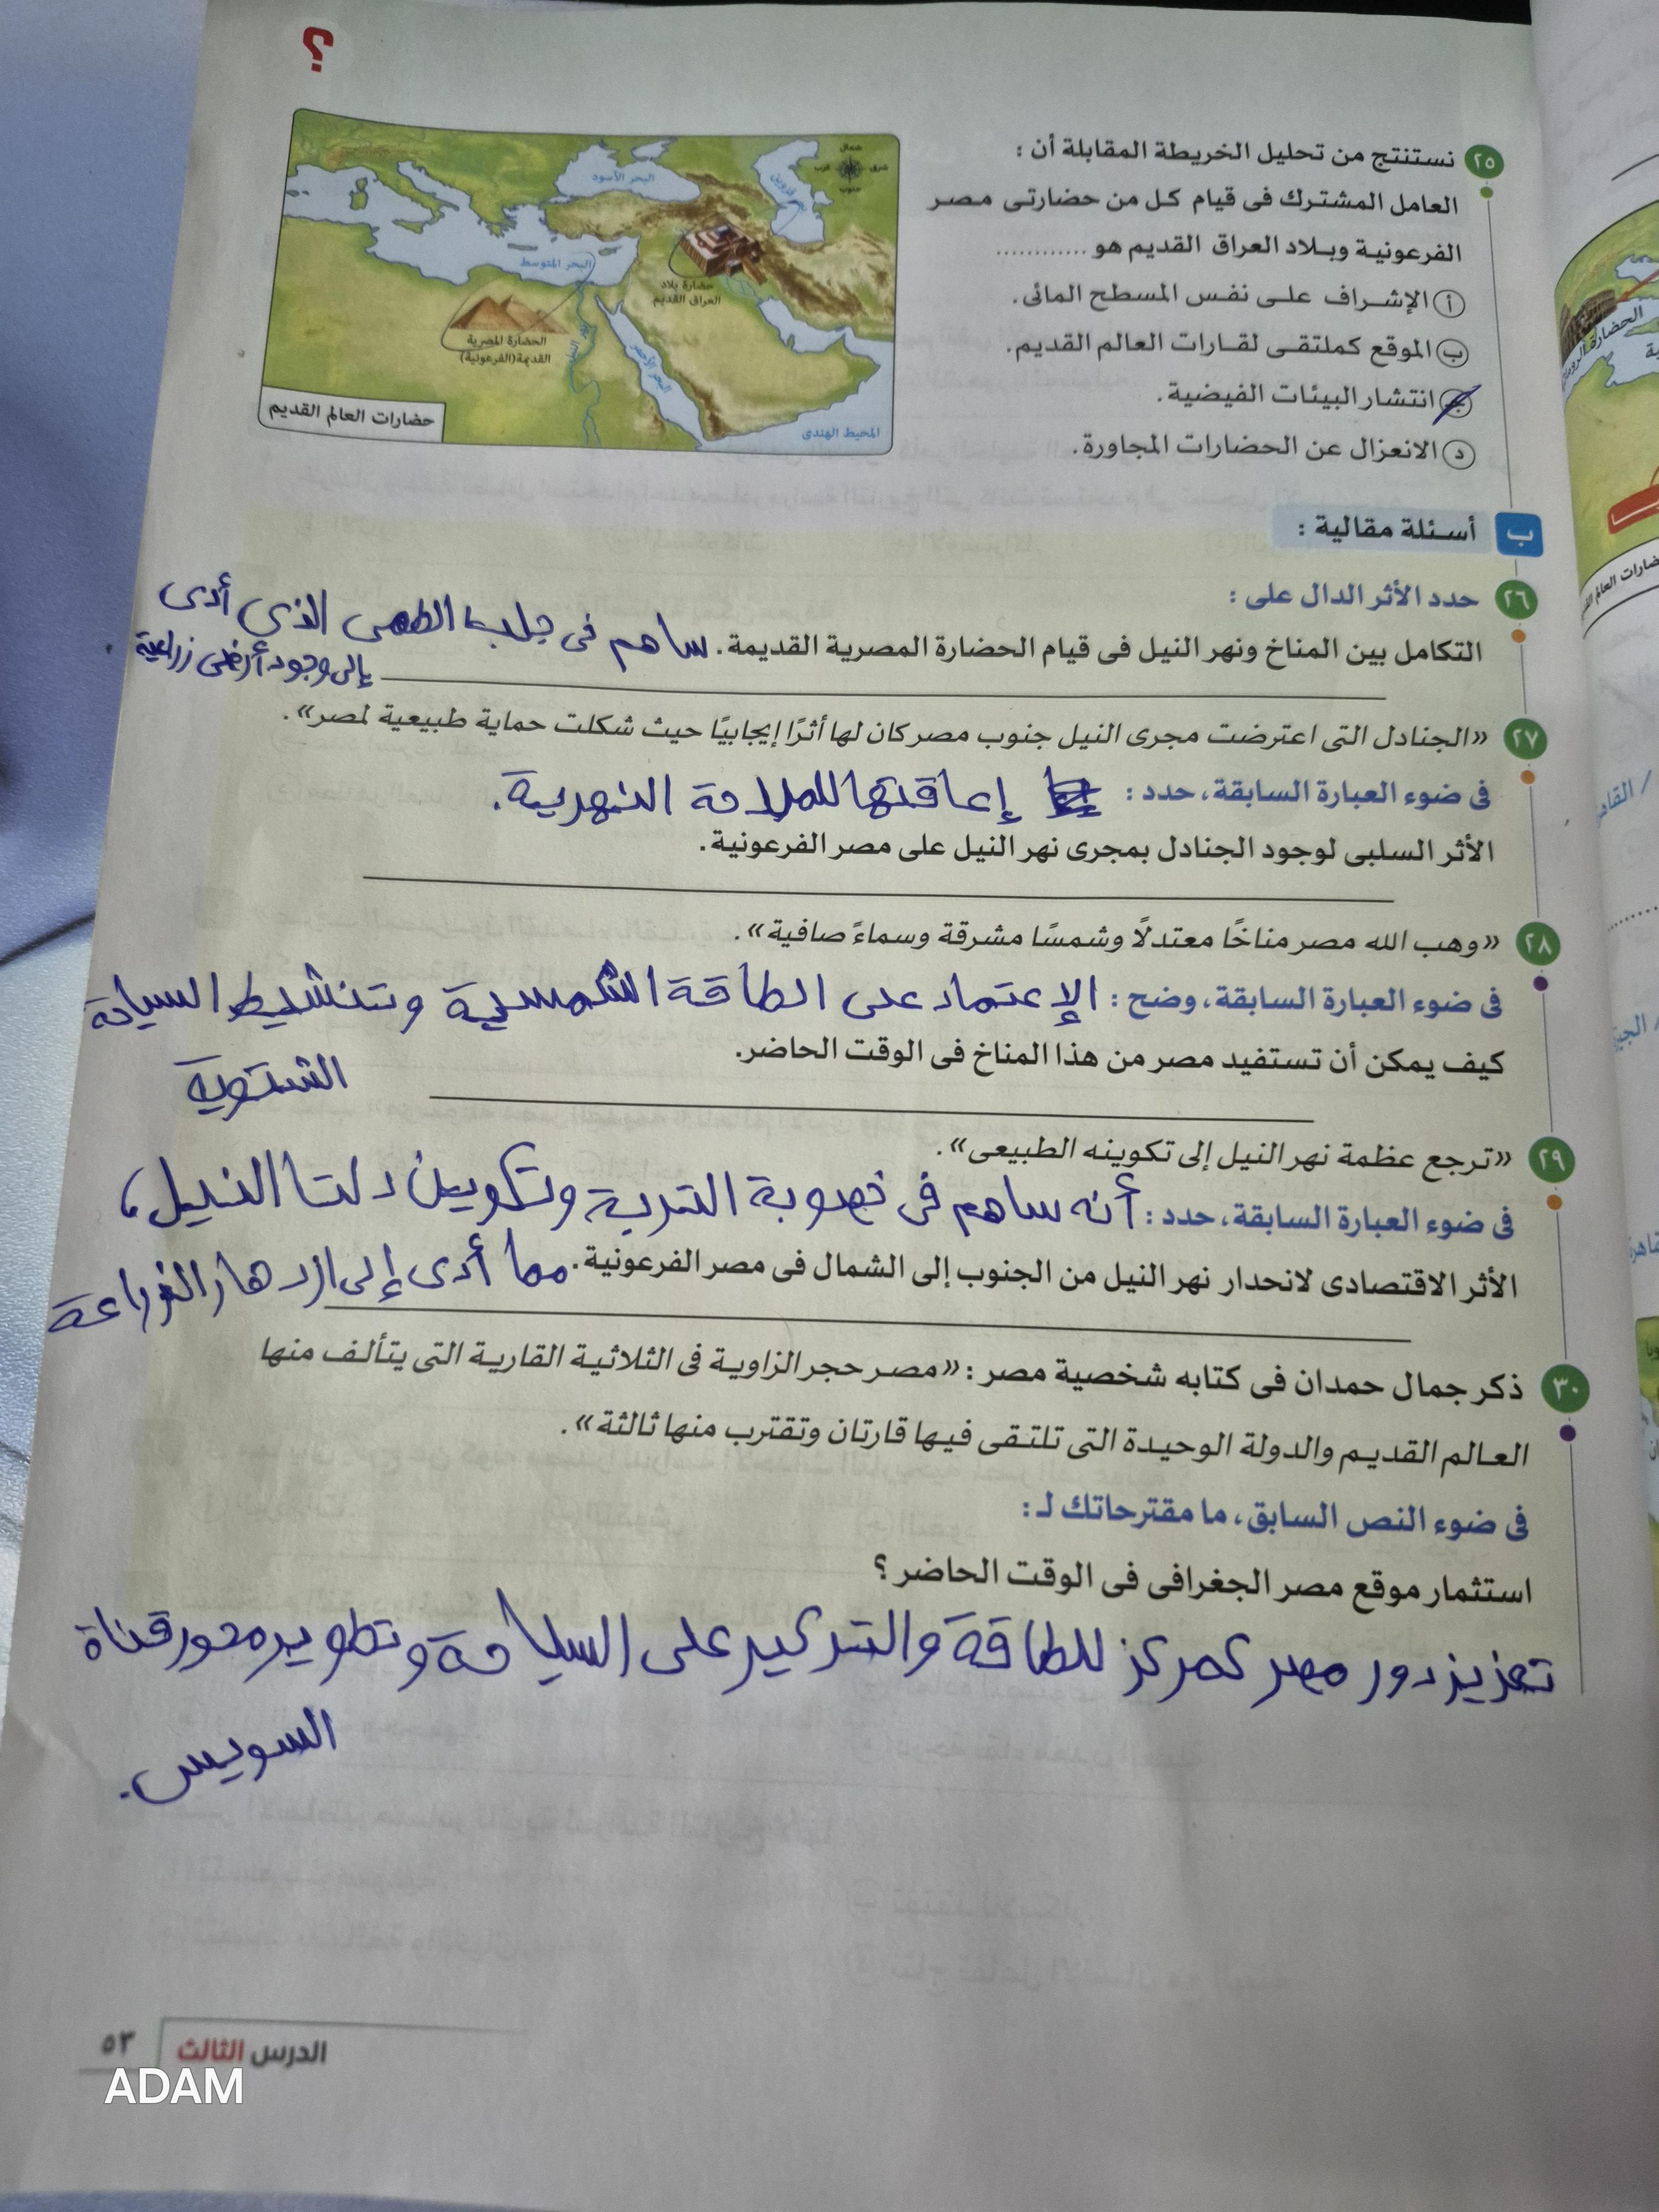 ؟
٢٥ نستنتج من تحليل الخريطة المقابلة أن :
العامل المشترك فى قيام كل من حضارتى مصر
الفرعونية وبلاد العراق القديم هو ............
أ الإشراف على نفس المسطح المائى.
ب الموقع كملتقى لقارات العالم القديم.
ج انتشار البيئات الفيضية.
د الانعزال عن الحضارات المجاورة.
شمال
شرق
غرب
جنوب
البحر الأسود
بحر قزوين
البحر المتوسط
حضارة بلاد
العراق القديم
الحضارة المصرية
القديمة (الفرعونية)
نهر النيل
البحر الأحمر
المحيط الهندى
حضارات العالم القديم
ب أسئلة مقالية :
٢٦ حدد الأثر الدال على :
التكامل بين المناخ ونهر النيل فى قيام الحضارة المصرية القديمة. ساهم فى جلب الطمى الذى أدى
إلى وجود أرضى زراعية
٢٧ «الجنادل التى اعترضت مجرى النيل جنوب مصر كان لها أثرًا إيجابيًا حيث شكلت حماية طبيعية لمصر».
فى ضوء العبارة السابقة، حدد : إعاقتها للملاحة النهرية.
الأثر السلبى لوجود الجنادل بمجرى نهر النيل على مصر الفرعونية.
٢٨ «وهب الله مصر مناخًا معتدلًا وشمسًا مشرقة وسماءً صافية».
فى ضوء العبارة السابقة، وضح : الإعتماد على الطاقة الشمسية وتنشيط السياحة
الشتوية
كيف يمكن أن تستفيد مصر من هذا المناخ فى الوقت الحاضر.
٢٩ «ترجع عظمة نهر النيل إلى تكوينه الطبيعى».
فى ضوء العبارة السابقة، حدد : أنه ساهم فى خصوبة التربة وتكوين دلتا النيل،
الأثر الاقتصادى لانحدار نهر النيل من الجنوب إلى الشمال فى مصر الفرعونية. مما أدى إلى ازدهار الزراعة
٣٠ ذكر جمال حمدان فى كتابه شخصية مصر : «مصر حجر الزاوية فى الثلاثية القارية التى يتألف منها
العالم القديم والدولة الوحيدة التى تلتقى فيها قارتان وتقترب منها ثالثة».
فى ضوء النص السابق، ما مقترحاتك لـ :
استثمار موقع مصر الجغرافى فى الوقت الحاضر ؟
تعزيز دور مصر كمركز للطاقة والتركيز على السياحة وتطوير محور قناة
السويس.
الدرس الثالث
٥٣
ADAM